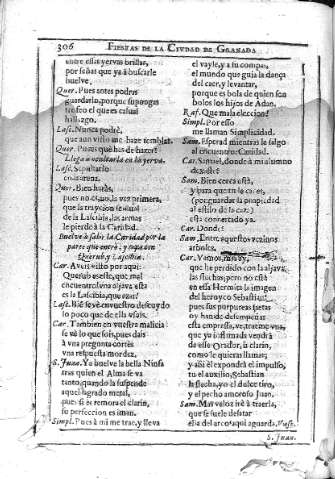 306 FIESTAS DE LA CIVDAD DE GRANADA
entre essas yervas brillar,
por señas que ya à buscarle
buelve.
Quer. Pues antes podràs
guardarlo, porque supongas
trofeo el que es casual
hallazgo.
Lasc. Nunca podrè,
que aun visto me haze temblar.
Quer. Pues què has de hazer?
Llega à ocultarla en la yerva.
Lasc. Sepultarlo
Quer. Bien haràs,
pues no es la vez primera,
que la traycion se
de la Lascibia, las armas
le pierde à la Caridad.
Buelve à salir la Caridad por la
parte que entrò, y topa con
Querub, y Lascibia.
Car. Aveis visto por aqui:
Querub es este, que mal
encuentro! vna aljava esta
es la Lascibia, que
poco que de ella vsais.
Car. Tambien en vuestra malicia
se vè lo que sois, pues dais
à vna pregunta cortès
vna respuesta mordaz.
S. Juan. Ya buelve la bella Ninfa
tras quien el Alma se va
tanto, quando la suspende
aquel sagrado metal,
pues si es remora el clarin,
su perfeccion es iman.
Simpl. Pues à mi me trae, y lleva
el vayle, y a su compas,
el mundo que guia la dança
del caer, y levantar,
porque es bola de quien son
bolos los hijos de Adan.
Raf. Què mala eleccion!
Simpl. Por esso
me llaman Simplicidad.
Sam. Esperad mientras le salgo
al encuentro: Caridad.
Car. Samuel, donde à mi alumno
dexaste?
Sam. Bien cerca està,
(por guardar la propiedad
al estilo de la
està convertado ya.
Car. Donde?
Sam. Entre aquestos vezinos
arboles.
Car. Vamos, mas ay,
que he perdido con la aljava,
las flechas, pero no està
en essa Hermita la imagen
del heroyco Sebastian?
pues sus purpureas saetas
oy han de desempeñar
esta empressa, ve, traeme vna,
que yo inflamada vendrà
de esse Orador, ù clarin,
como le quieras llamar,
y assi èl expondrà el impulso,
tu el auxilio, Sebastian
la flecha, yo el dulce tiro,
y el pecho amoroso Juan.
Sam. Mas veloz irè à traerla,
que se suele desatar
ella del arco: aqui aguarda. Vase.
S. Juan.